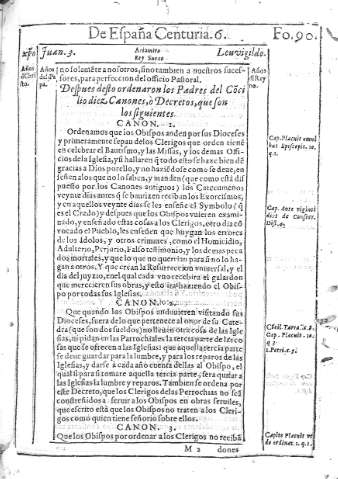 De España Centuria. 6. Fo. 90.
Juan. 3. Ariamiro Rey Suevo Leuvigildo.
no solamẽte a nosotros, sino tambien a nuestros succesores, para perfection del officio Pastoral.
Despues desto ordenaron los Padres del Cõcilio diez Canones, o Decretos, que son
los siguientes.
CANON. 1.
Ordenamos que los Obispos anden por sus Dioceses
y primeramente sepan de los Clerigos que orden tienen
en celebrar el Bautismo, y las Missas, y los demas Officios
de la Iglesia, y si hallaren q̃ todo esto se haze biẽ dẽ
gracias a Dios por ello, y no haziẽdose como se deve, enseñen
a los que no lo saben, y mandẽ (que como està dispuesto
por los Canones antiguos) los Catecumenos
veynte dias antes q̃ se bautizẽ reciban los Exorcismos,
y en aquellos veynte dias se les enseñe el Symbolo (q̃
es el Credo) y despues que los Obispos uvieren examinado,
y enseñado estas cosas a los Clerigos, otro dia cõvocado
el Pueblo, les enseñen que huygan los errores
de los Idolos, y otros crimines, como el Homicidio,
Adulterio, Perjurio, Falso testimonio, y los demas pecados
mortales, y que lo que no querriã para si no lo hagan
a otros. Y que crean la Resurreccion universal, y el
dia del juyzio, en el qual cada uno recebira el galardon
que mereciere sus obras, y esto irà haziendo el Obispo
por todas sus Iglesias.
CANON. 2.
Que quando los Obispos anduvieren visitando sus
Dioceses, fuera de lo que pertenece al onor de su Catedra
(que son dos sueldos) no lleven otra cosa de las Iglesias,
ni pidan en las Parrochiales la tercia parte de las cosas
que se ofrecen a las Iglesias, sino que aquella tercia parte
se deve guardar para la lumbre, y para los reparos de las
Iglesias, y darse à cada año cuenta dellas al Obispo, el
qual si para si tomare aquella tercia parte, serà quitar a
las Iglesias la lumbre y reparos. Tambien se ordena por
este Decreto, que los Clerigos de las Perrochias no seã
constreñidos a servir a los Obispos en obras serviles,
que escrito està que los Obispos no traten a los Clerigos
como quien tiene señorio sobre ellos.
CANON. 3.
Que los Obispos por ordenar a los Clerigos no recibã
M 2 dones